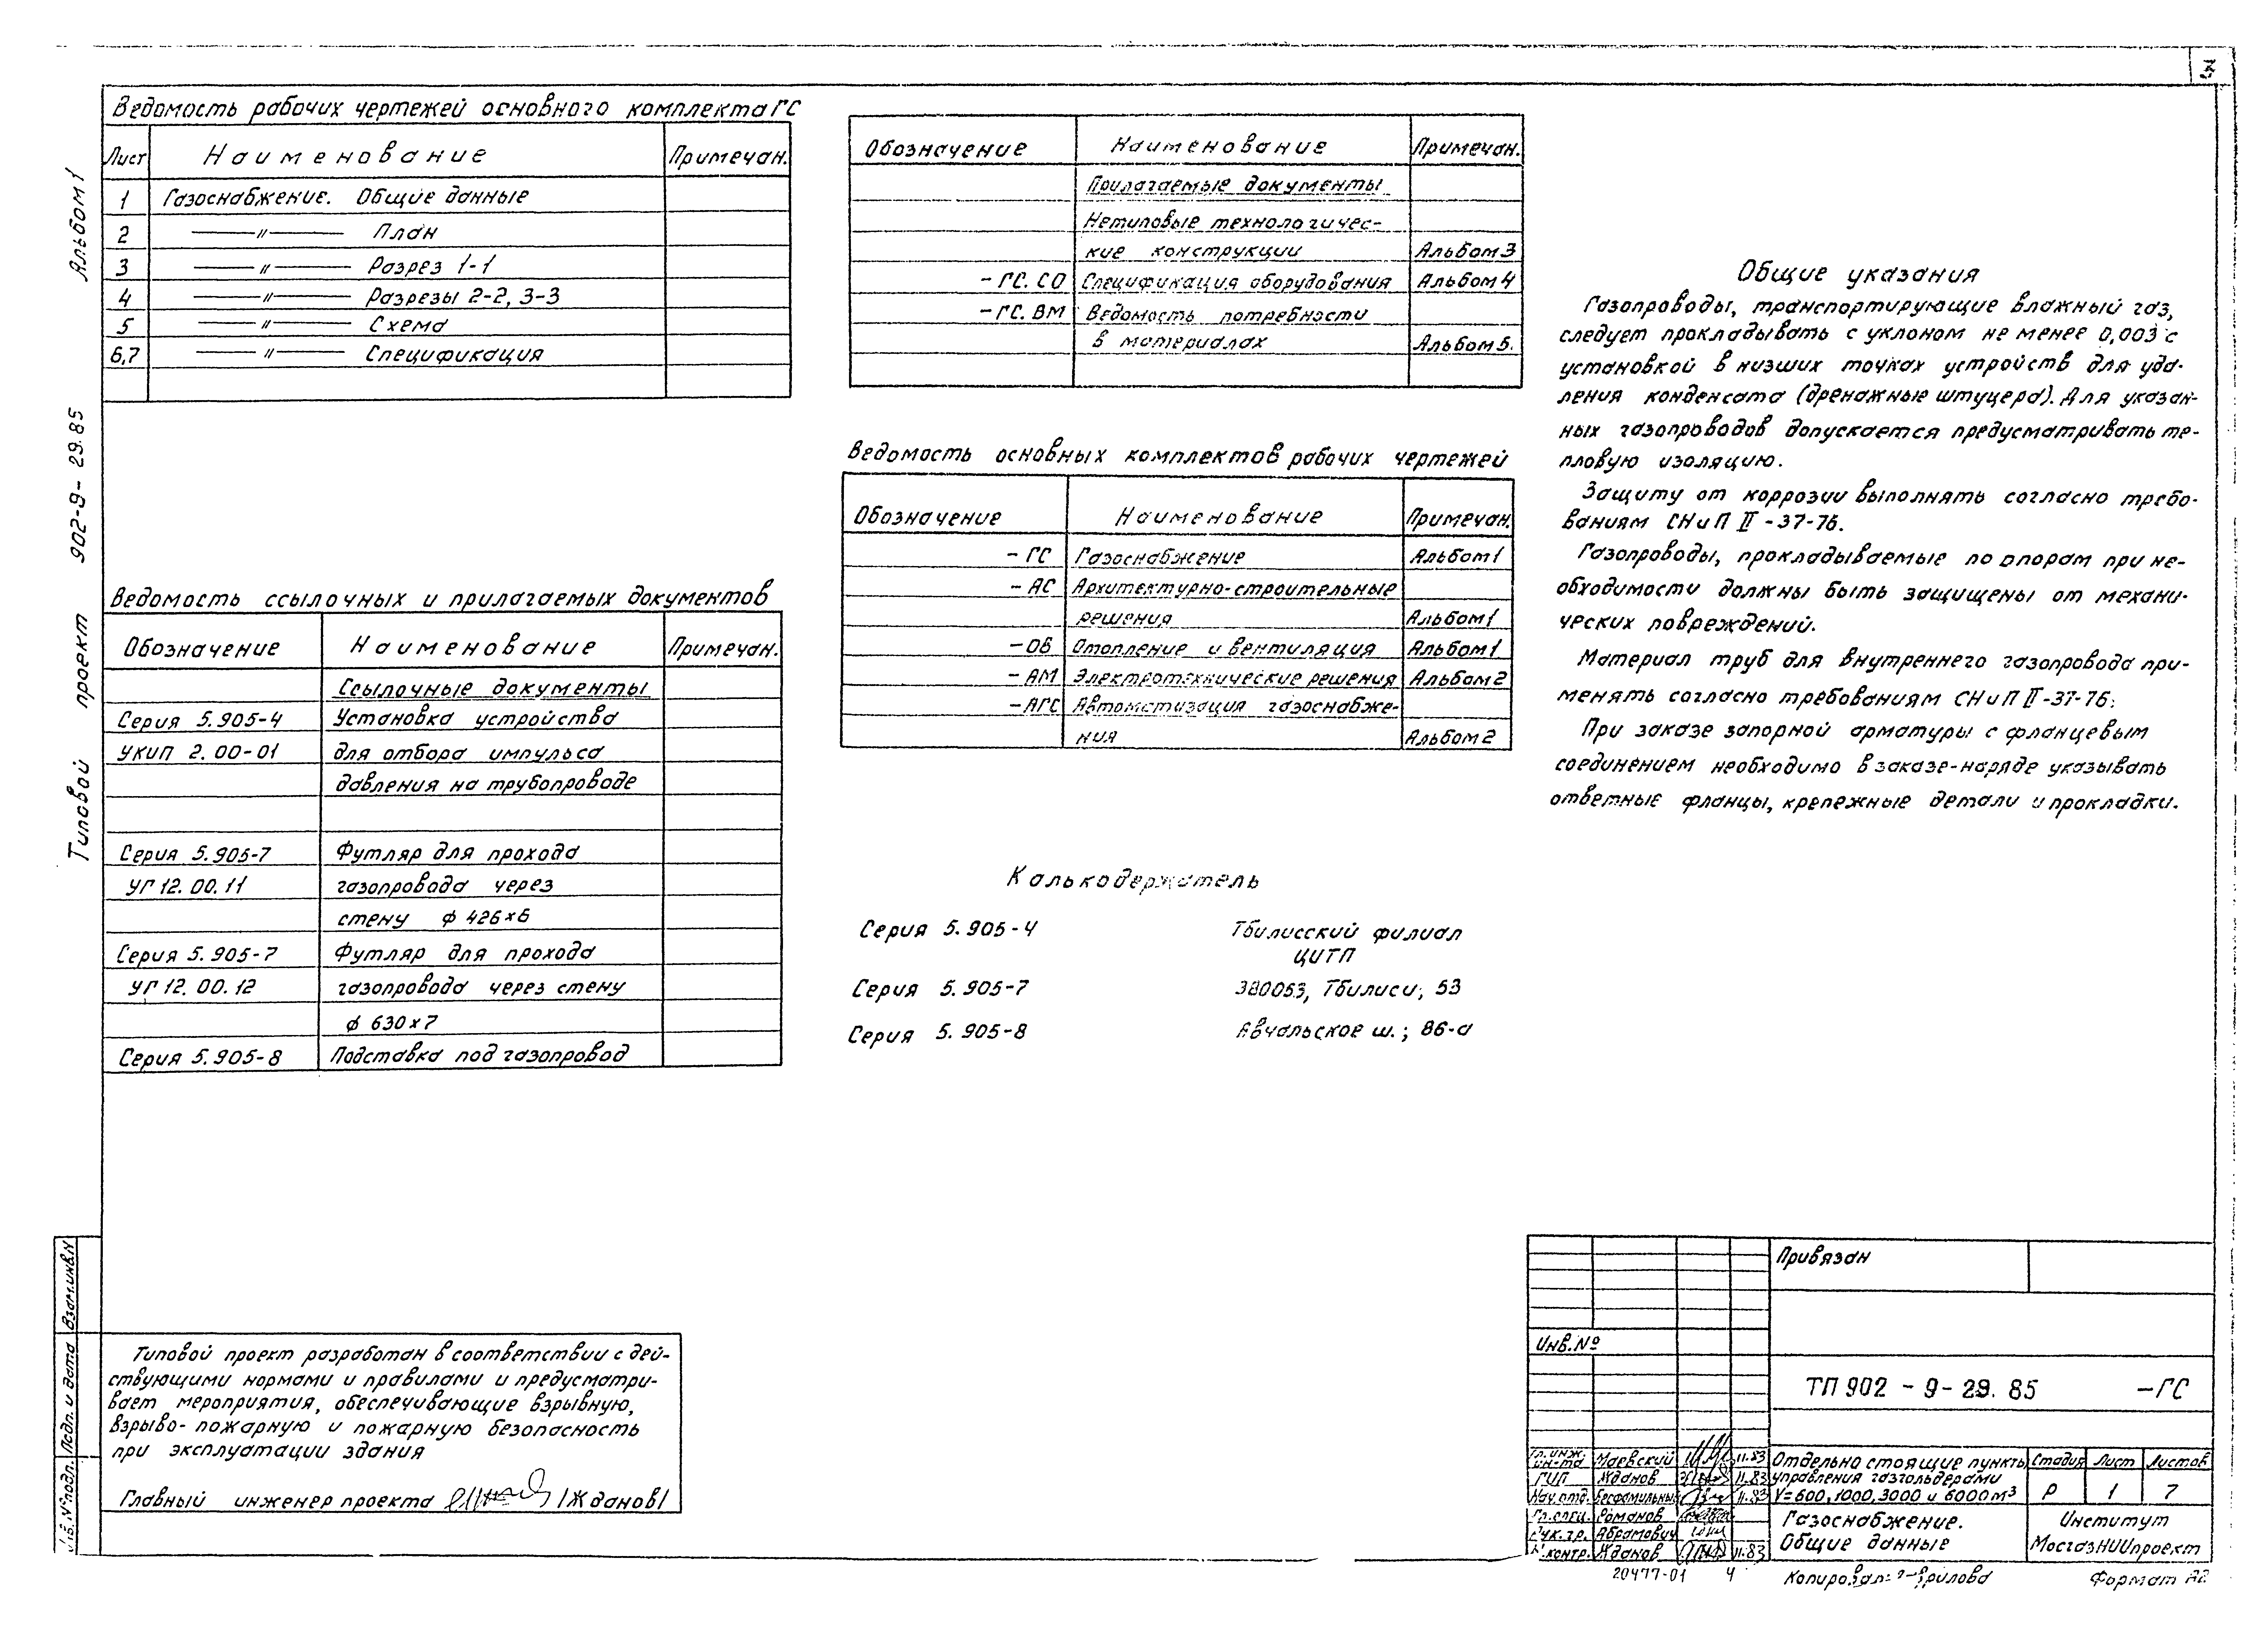 3
Альбом 1
Типовой проект 902-9-29.85
Ведомость рабочих чертежей основного комплекта ГС
Лист Наименование Примечан.
1 Газоснабжение. Общие данные
2 —〃— План
3 —〃— Разрез 1-1
4 —〃— Разрезы 2-2, 3-3
5 —〃— Схема
6,7 —〃— Спецификация
Ведомость ссылочных и прилагаемых документов
Обозначение Наименование Примечан.
Ссылочные документы
Серия 5.905-4 Установка устройства
УКИП 2.00-01 для отбора импульса
давления на трубопроводе
Серия 5.905-7 Футляр для прохода
УГ 12.00.11 газопровода через
стену ф 426×6
Серия 5.905-7 Футляр для прохода
УГ 12.00.12 газопровода через стену
ф 630×7
Серия 5.905-8 Подставка под газопровод
Обозначение Наименование Примечан.
Прилагаемые документы
Нетиповые технологичес-
кие конструкции Альбом 3
-ГС.СО Спецификация оборудования Альбом 4
-ГС.ВМ Ведомость потребности
в материалах Альбом 5.
Ведомость основных комплектов рабочих чертежей
Обозначение Наименование Примечан.
-ГС Газоснабжение Альбом 1
-АС Архитектурно-строительные
решения Альбом 1
-ОВ Отопление и вентиляция Альбом 1
-АМ Электротехнические решения Альбом 2
-АГС Автоматизация газоснабже-
ния Альбом 2
Калькодержатель
Серия 5.905-4 Тбилисский филиал
ЦИТП
Серия 5.905-7 380053, Тбилиси, 53
Серия 5.905-8 Авчальское ш.; 86-а
Общие указания
Газопроводы, транспортирующие влажный газ,
следует прокладывать с уклоном не менее 0,003 с
установкой в низших точках устройств для уда-
ления конденсата (дренажные штуцера). Для указан-
ных газопроводов допускается предусматривать те-
пловую изоляцию.
Защиту от коррозии выполнять согласно требо-
ваниям СНиП II-37-76.
Газопроводы, прокладываемые по опорам при не-
обходимости должны быть защищены от механи-
ческих повреждений.
Материал труб для внутреннего газопровода при-
менять согласно требованиям СНиП II-37-76.
При заказе запорной арматуры с фланцевым
соединением необходимо в заказе-наряде указывать
ответные фланцы, крепежные детали и прокладки.
Типовой проект разработан в соответствии с дей-
ствующими нормами и правилами и предусматри-
вает мероприятия, обеспечивающие взрывную,
взрыво-пожарную и пожарную безопасность
при эксплуатации здания
Главный инженер проекта /Жданов/
Инв.№подл. Подп. и дата Взам.инв.N
Привязан
Инв.№
ТП 902-9-29.85 -ГС
Гл.инж. ин-та Маевский 11.83
ГИП Жданов 11.83
Нач.отд. Бесфамильный 11.83
Гл.спец. Романов
Рук.гр. Абрамович
Н.контр. Жданов 11.83
Отдельно стоящие пункты
управления газгольдерами
V=600, 1000, 3000 и 6000 м³
Стадия Лист Листов
Р 1 7
Газоснабжение.
Общие данные
Институт
МосгазНИИпроект
20477-01 4
Формат А2